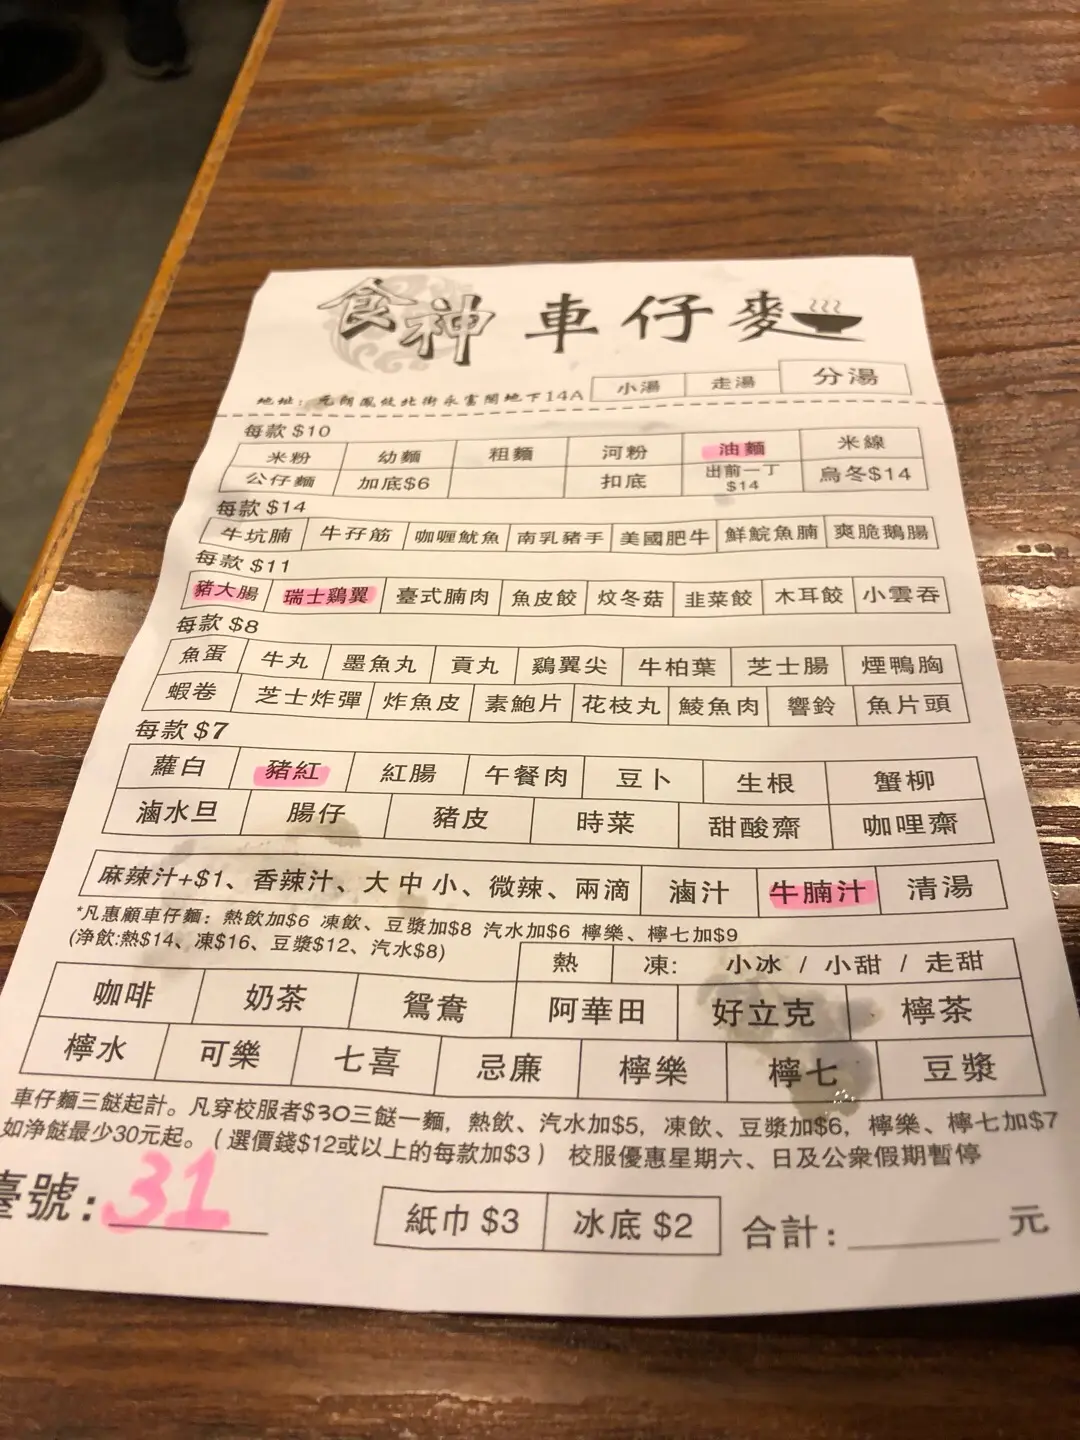 食神 車仔麥
小湯 走湯 分湯
地址：元朗鳳攸北街永富閣地下14A
每款 $10
米粉 幼麵 粗麵 河粉 油麵 米線
公仔麵 加底$6 扣底 出前一丁 $14 烏冬$14
每款 $14
牛坑腩 牛孖筋 咖喱魷魚 南乳豬手 美國肥牛 鮮鯇魚腩 爽脆鵝腸
每款 $11
豬大腸 瑞士鷄翼 臺式腩肉 魚皮餃 炆冬菇 韭菜餃 木耳餃 小雲吞
每款 $8
魚蛋 牛丸 墨魚丸 貢丸 鷄翼尖 牛柏葉 芝士腸 煙鴨胸
蝦卷 芝士炸彈 炸魚皮 素鮑片 花枝丸 鯪魚肉 響鈴 魚片頭
每款 $7
蘿白 豬紅 紅腸 午餐肉 豆卜 生根 蟹柳
滷水旦 腸仔 豬皮 時菜 甜酸齋 咖哩齋
麻辣汁+$1、香辣汁、大中小、微辣、兩滴 滷汁 牛腩汁 清湯
*凡惠顧車仔麵：熱飲加$6 凍飲、豆漿加$8 汽水加$6 檸樂、檸七加$9
(淨飲:熱$14、凍$16、豆漿$12、汽水$8)
熱 凍: 小冰 / 小甜 / 走甜
咖啡 奶茶 鴛鴦 阿華田 好立克 檸茶
檸水 可樂 七喜 忌廉 檸樂 檸七 豆漿
車仔麵三餸起計。凡穿校服者$30三餸一麵，熱飲、汽水加$5，凍飲、豆漿加$6，檸樂、檸七加$7
如淨餸最少30元起。（選價錢$12或以上的每款加$3） 校服優惠星期六、日及公衆假期暫停
臺號: 31
紙巾 $3 冰底 $2 合計: 元